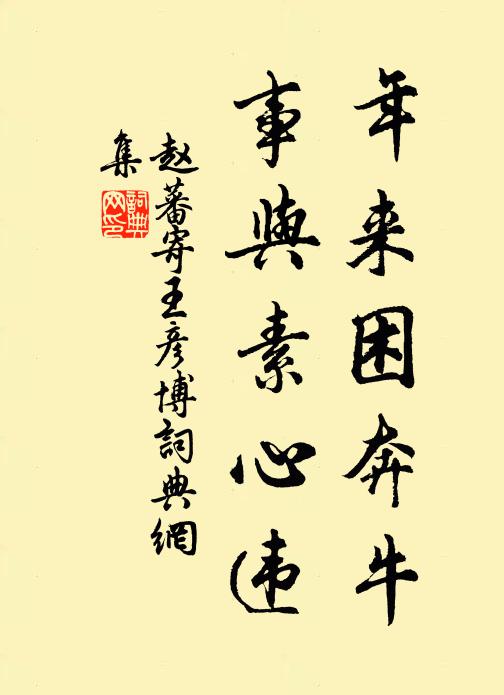 年来困奔牛
事與素心违
赵蕃寄王彦博詞典網
集
詞典网印